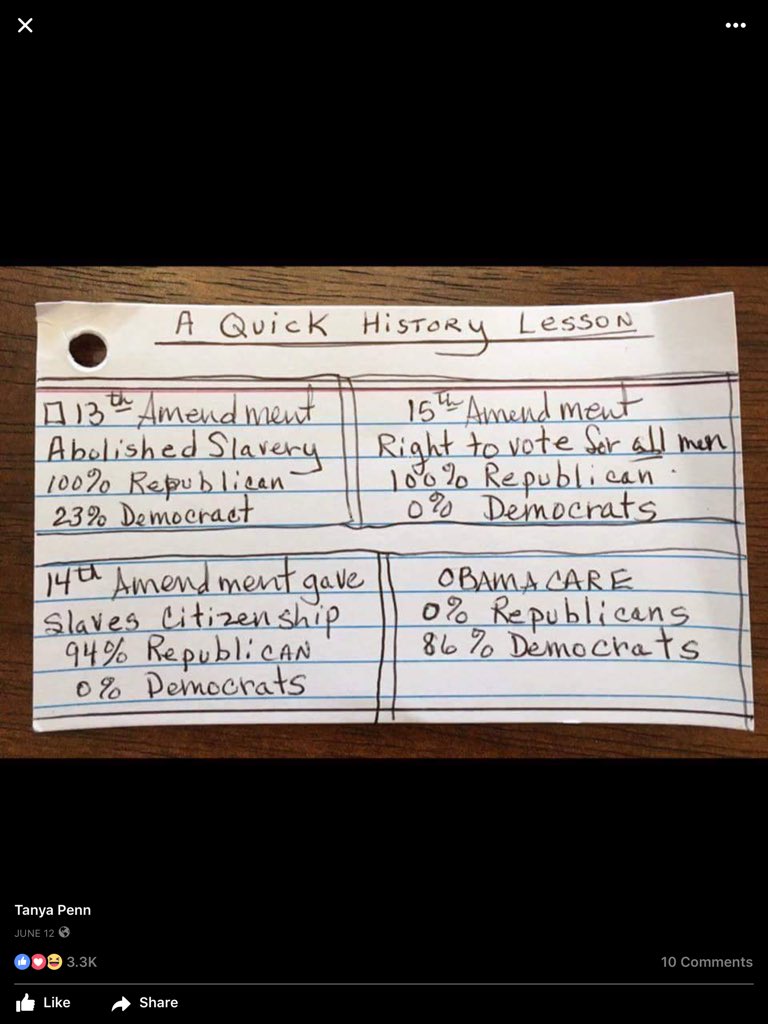 A Quick History Lesson
13th Amendment
Abolished Slavery
100% Republican
23% Democract
15th Amendment
Right to vote for all men
100% Republican
0% Democrats
14th Amendment gave
Slaves citizenship
94% Republican
0% Democrats
OBAMACARE
0% Republicans
86% Democrats
Tanya Penn
JUNE 12
3.3K
10 Comments
Like
Share